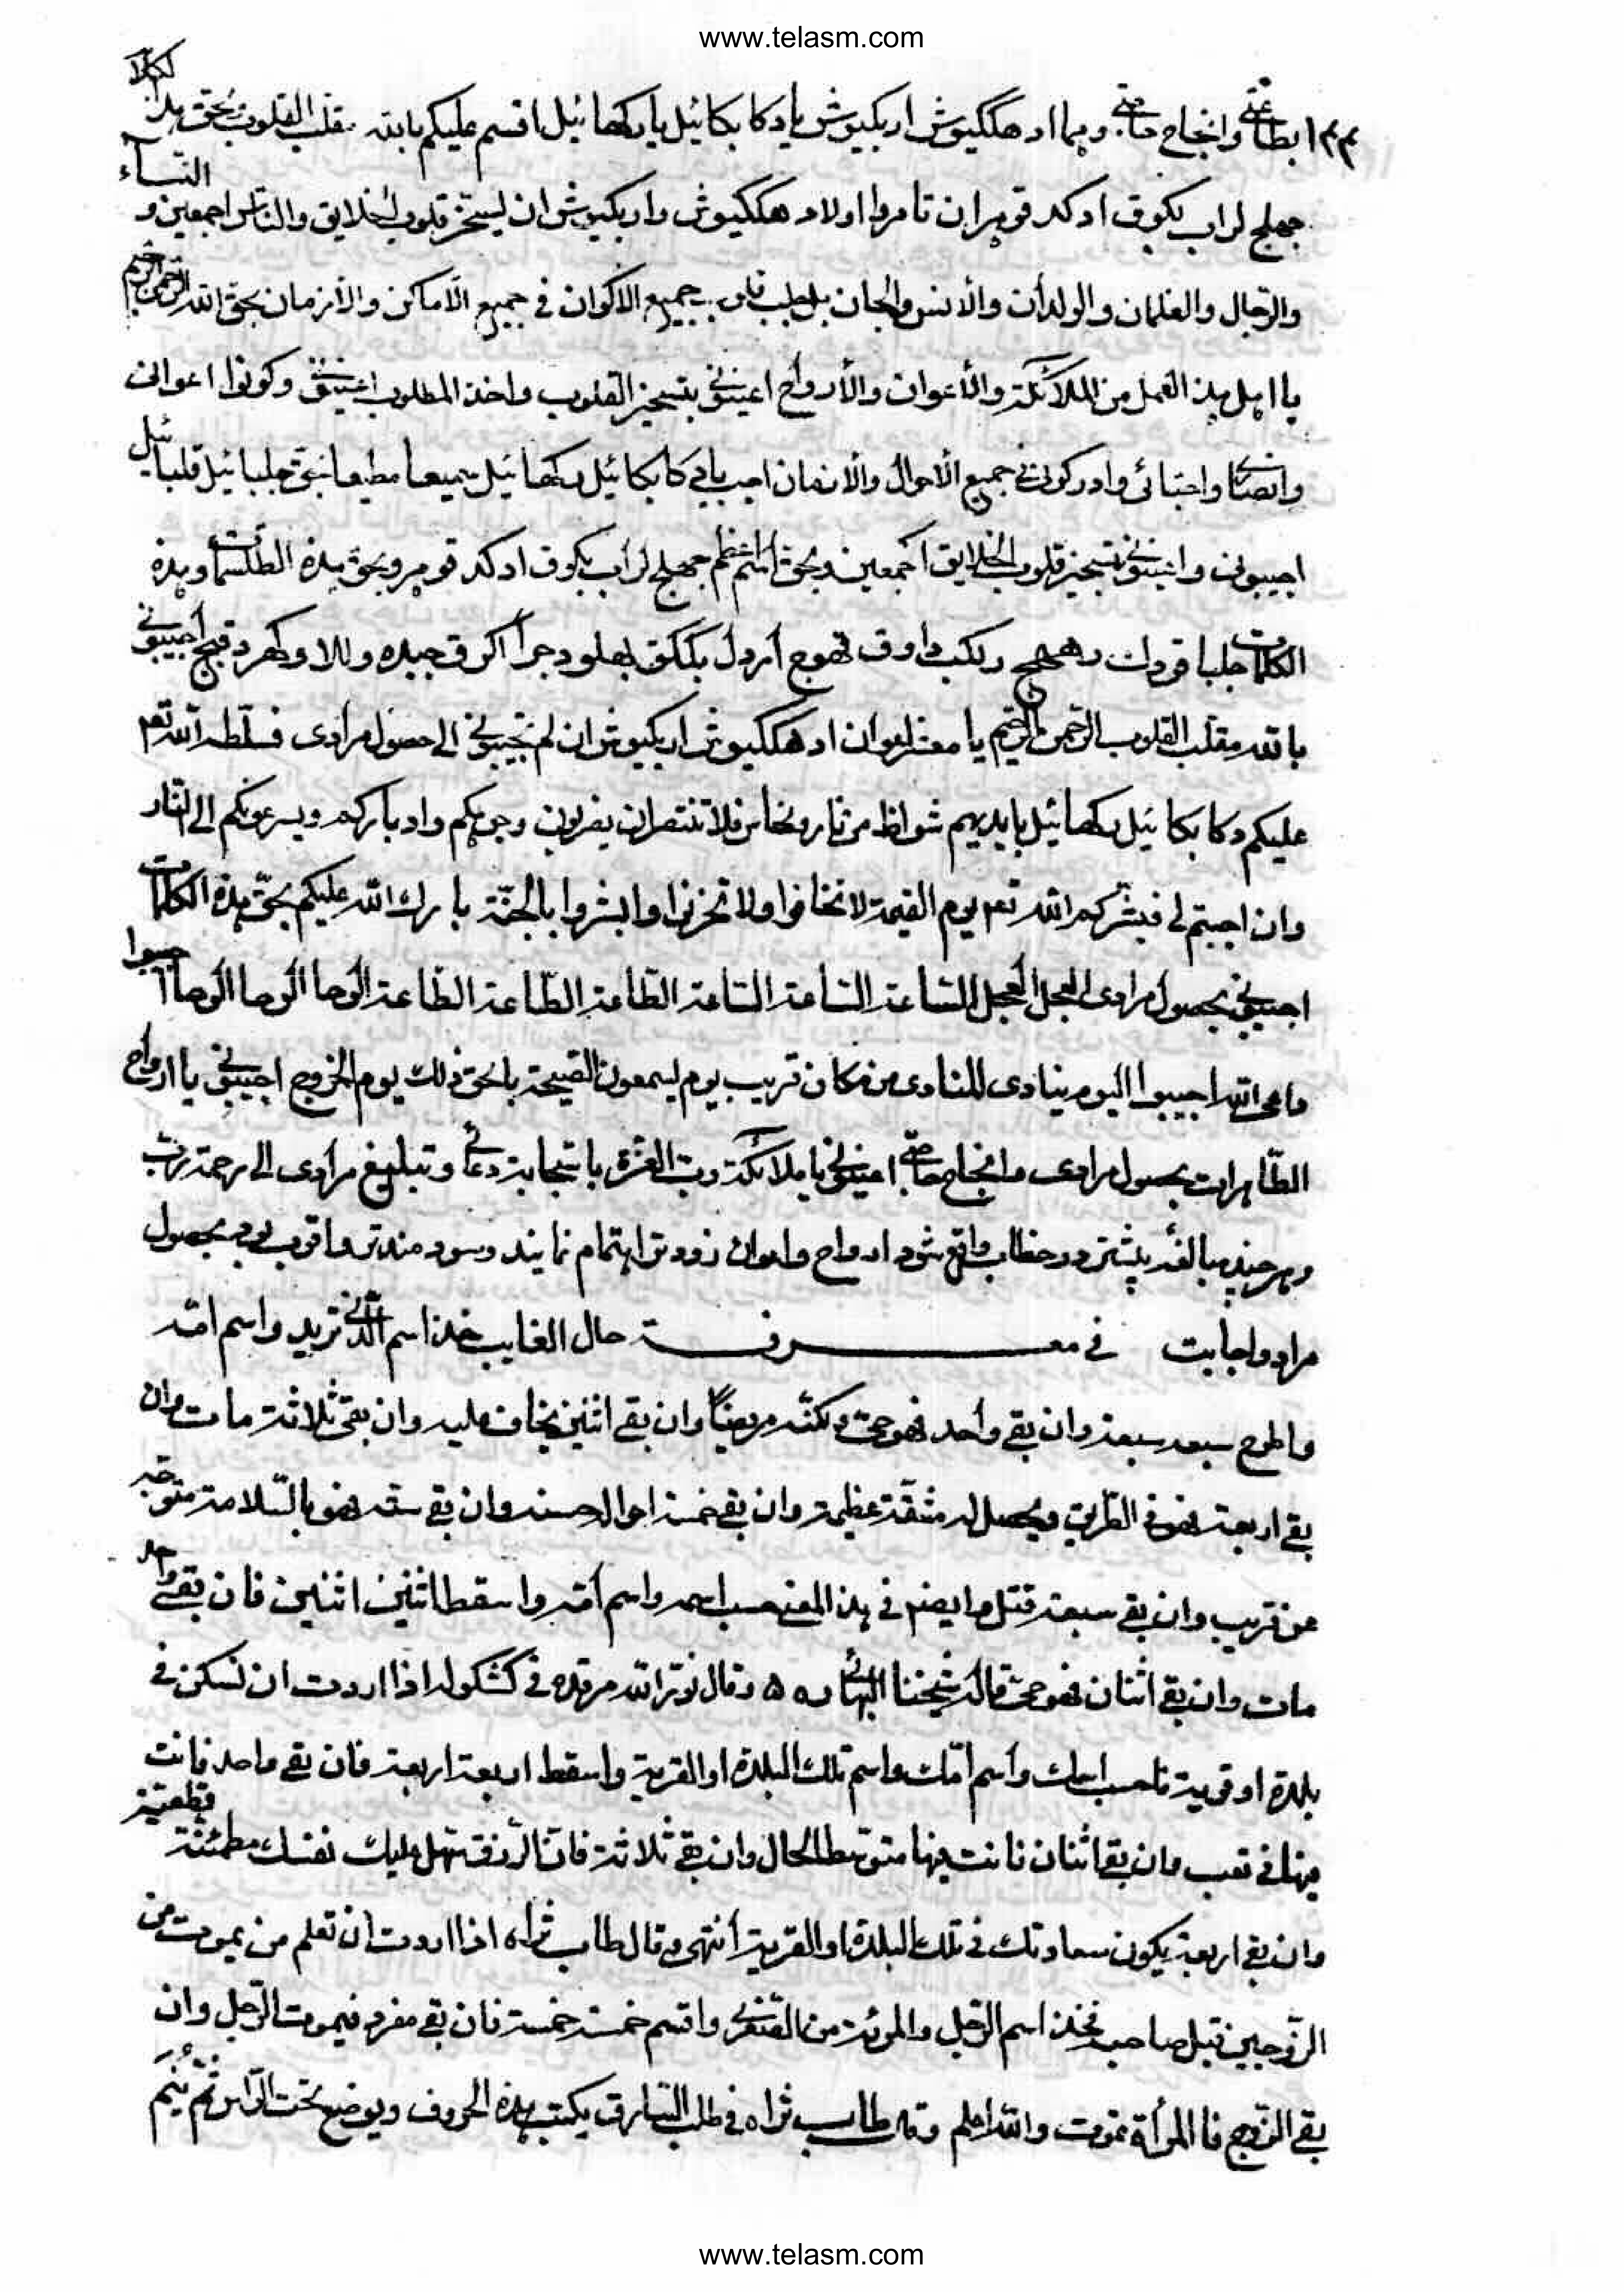 www.telasm.com
بطاعتی وانجاح حاجتی وبما ادهککیوش اربکیوش یا دکابکائیل یا رکهائیل اقسم علیکم بالله مقلب القلوب بحق هذا
جهلج لراب بکوف ادکد قوهران تامروا اولاد هککیوش واربکیوش ان لیسخر قلوب الخلایق والناس اجمعین و النساء
والرجال والغلمان والولدان والانس والجان بجمیع الاکوان فی جمیع الاماکن والازمان بحق الله الرحمن الرحیم
یا اهل هذا العمل من الملائکة والاعوان والارواح اعینونی بتسخیر القلوب واخذ المطلوب اعینونی وکونوا اعوانی
وانصاری واحبائی وادرکونی فی جمیع الاحوال والازمان اجب یا دکابکائیل رکهائیل سمیعا مطیعا بحق جلبائیل قلبائیل
اجیبونی واعینونی بتسخیر قلوب الخلایق اجمعین وبحق اسم اعظم جهلج لراب بکوف ادکد قوهر وبحق هذه الطلسمات وهذه
الکلمات جلبا اجیبونی
بالله مقلب القلوب الرحمن الرحیم یا معشر اعوان ادهککیوش اربکیوش ان لم تجیبونی الی حصول مرادی فسلطه الله تعم
علیکم دکابکائیل رکهائیل بایدیهم شواظ من نار ونحاس فلا تنتصران یضربون وجوهکم وادبارکم ویسرعونکم الی النار
وان اجبتم لی فبشرکم الله تعم یوم القیمة لا تخافوا ولا تحزنوا وابشروا بالجنة بارک الله علیکم بحق هذه الکلمات
اجیبونی بحصول مرادی العجل العجل الساعة الساعة الساعة الطاعة الطاعة الطاعة الوحا الوحا الوحا اجیبوا
داعی الله اجیبوا الیوم ینادی المنادی من مکان قریب یوم یسمعون الصیحة بالحق ذلک یوم الخروج اجیبونی یا ارواح
الطاهرات بحصول مرادی وانجاح حاجتی اعینونی یا ملائکة رب العزة باستجابة دعائی وتبلیغ مرادی الی رحمة رب
وهر چند مبالغه بیشتر در خطاب واقع شود ارواح واعوان زودتر اهتمام نمایند وسودمندتر واقرب بود بحصول
مراد واجابت فی معرفة حال الغایب خذ اسم الذی ترید واسم امه
واطرح سبعه سبعة وان بقی واحد فهو حی ولکنه مریضا وان بقی اثنین یخاف علیه وان بقی ثلاثة مات وان
بقی اربعة فهو فی الطریق ویحصل له مشقة عظیمة وان بقی خمسة احواله حسنة وان بقی سته فهو بالسلامة متوجه
عن قریب وان بقی سبعة قتل وایضا فی هذا المعنی حسب اسمه واسم امه واسقط اثنین اثنین فان بقی واحد
مات وان بقی اثنان فهو حی قاله شیخنا البهائی ره وقال نور الله مرقده فی کشکوله اذا اردت ان تسکن فی
بلدة او قریة فاحسب اسمک واسم امک واسم تلک البلدة او القریة واسقط اربعة اربعة فان بقی واحد فانت
فیها فی تعب وان بقی اثنان فانت فیها متوسط الحال وان بقی ثلاثة فان الرزق سهل علیک نفسک مطمئنة
وان بقی اربعة یکون سعادتک فی تلک البلدة او القریة انتهی وقال طاب ثراه اذا اردت ان تعلم من یموت من
الزوجین قبل صاحبه فخذ اسم الرجل والمرئة من الصغری واقسم خمسة خمسة فان بقی مفرد فیموت الرجل وان
بقی الزوج فالمرأة تموت والله اعلم وقال طاب ثراه فی طلب السارق یکتب هذه الحروف ویوضع تحت الراس ثم ینم
www.telasm.com